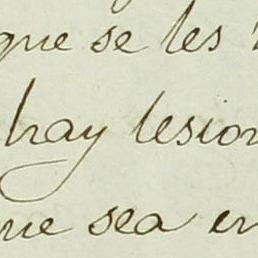 que se les
hay lesion
que sea en